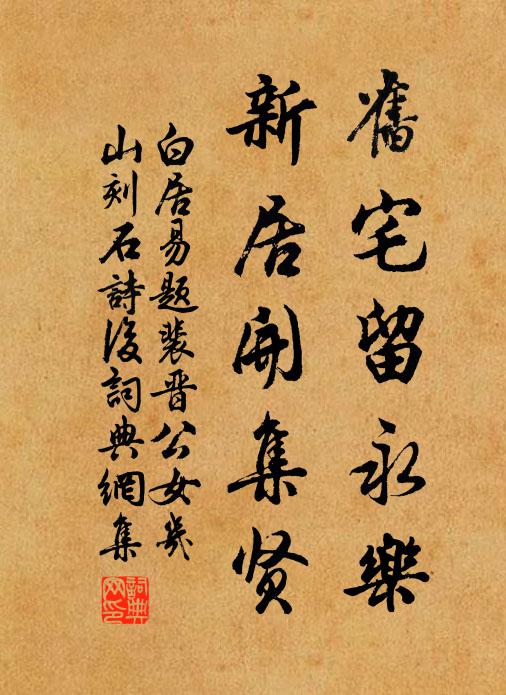 舊宅留永樂
新居開集賢
白居易題裴晋公女几
山刻石詩後詞典網集
詞典
网印